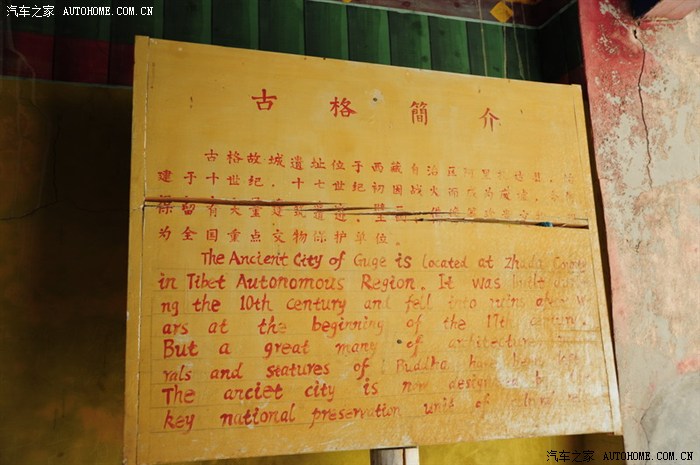 汽车之家 AUTOHOME.COM.CN
汽车之家 AUTOHOME.COM.CN
古格簡介
古格故城遺址位于西藏自治区阿里
建于十世纪，十七世纪初因战火而成为废墟，
保留有大量建筑遺迹、壁画、
为全国重点文物保护单位。
The Ancient City of Guge is located at Zhada County
in Tibet Autonomous Region. It was built
ng the 10th century and fell into ruins w
ars at the beginning of the 17th century.
But a great many of architecture
rals and statures of Buddha have been left
The anciet city is now by
key national preservation unit of
汽车之家 AUTOHOME.COM.CN